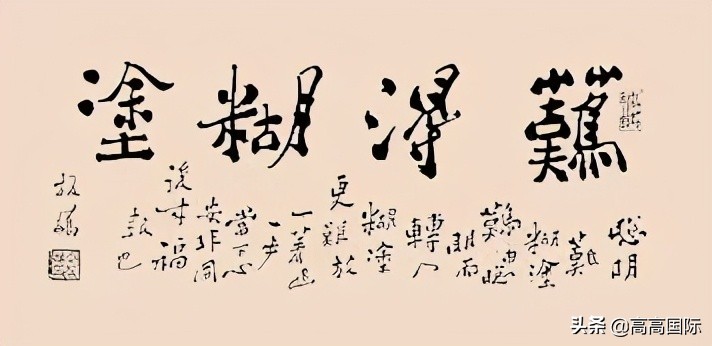 難得糊塗
聰明
難
糊塗
難由聰
明而
轉入
糊塗
更難放
一著退
一步
當下心
安非圖
後来福
報也
板橋
头条 @高高国际